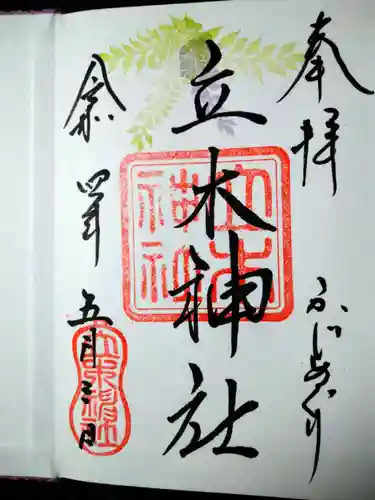 奉拝
ふじめぐり
立木神社
立木神社
令和四年
五月三日
立木神社